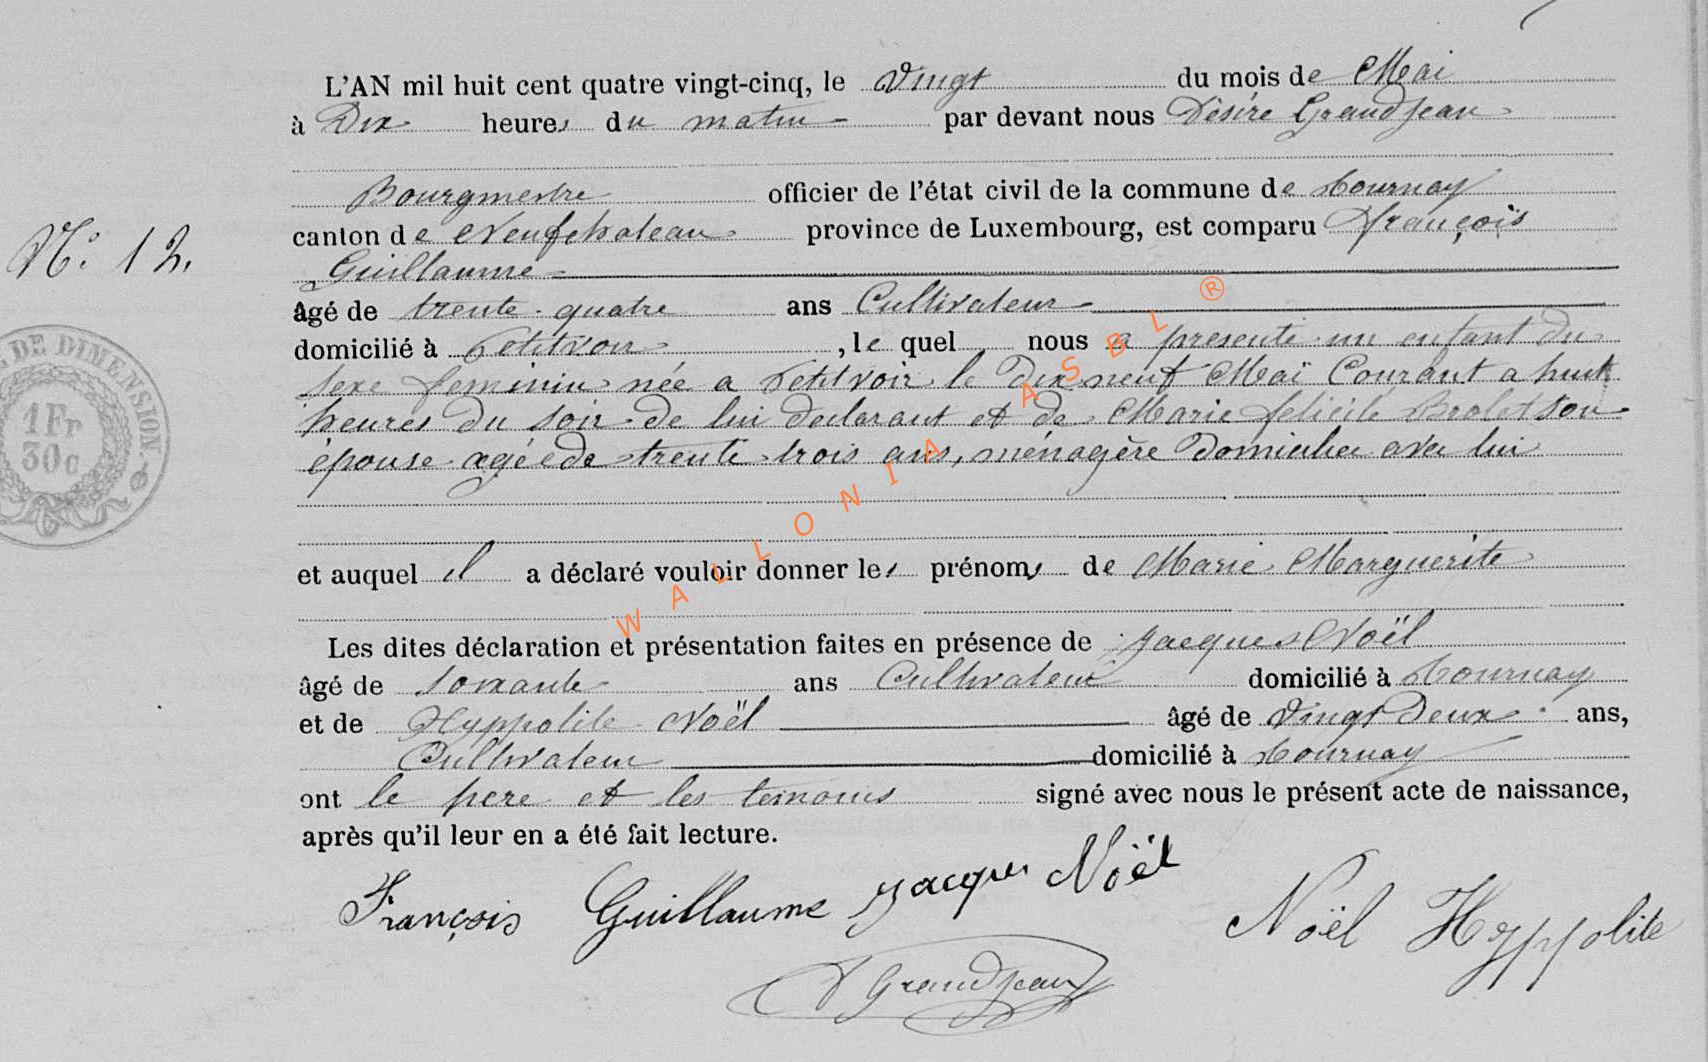 L'AN mil huit cent quatre vingt-cinq, le Vingt du mois de Mai
à Dix heures du matin par devant nous Désiré Grandjean
Bourgmestre officier de l'état civil de la commune de Tournay
N° 12.
canton de Neufchateau province de Luxembourg, est comparu François
Guillaume
âgé de trente-quatre ans Cultivateur
domicilié à Petitvoir, le quel nous a presenté un enfant du
sexe feminin née a Petitvoir le Dix neuf Maï Courant a huit
heures du soir de lui declarant et de Marie felicité Brolet son
épouse agée de trente trois ans, ménagère Domiciliée avec lui
et auquel il a déclaré vouloir donner les prénoms de Marie Marguerite
Les dites déclaration et présentation faites en présence de Jacques Noël
âgé de soixante ans Cultivateur domicilié à Tournay
et de Hyppolite Noël âgé de Vingt Deux ans,
Cultivateur domicilié à Tournay
ont le pere et les temoins signé avec nous le présent acte de naissance,
après qu'il leur en a été fait lecture.
François Guillaume Jacques Noël
Noël Hyppolite
D Grandjean
DE DIMENSION.
1Fr
30c
WALLONIA ASBL ®